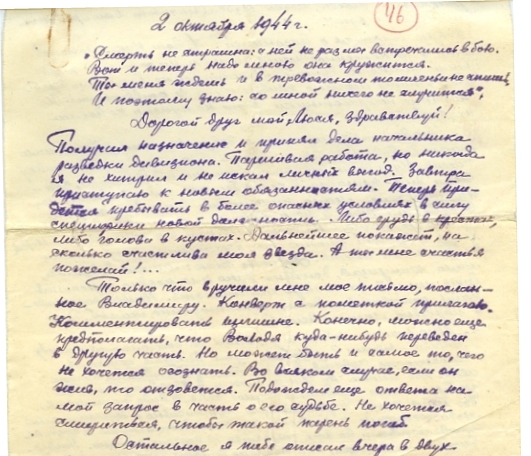 46
2 октября 1944 г.
„Смерть не страшна: с ней не раз мы встречались в бою.
Вот и теперь надо мною она кружится.
Ты меня ждешь и в тревожном томленьи не спишь,
И поэтому знаю: со мной ничего не случится",
Дорогой друг мой, Люся, здравствуй!
Получил назначение и принял дела начальника
разведки дивизиона. Паршивая работа, но никогда
я не хитрил и не искал личных выгод. Завтра
приступаю к новым обязанностям. Теперь при-
дется пребывать в более опасных условиях в силу
специфики новой долж-ности. Либо грудь в крестах,
либо голова в кустах. Дальнейшее покажет, на
сколько счастлива моя звезда. А ты мне счастья
пожелай!...
Только что вручили мне мое письмо, послан-
ное Владимиру. Конверт с пометкой прилагаю.
Комментировать излишне. Конечно, можно еще
предполагать, что Володя куда-нибудь переведен
в другую часть. Но может быть и самое то, чего
не хочется осознать. Во всяком случае, если он
жив, то отзовется. Подождем еще ответа на
мой запрос в часть о его судьбе. Не хочется
смириться, чтобы такой парень погиб.
Остальное я тебе описал вчера в двух